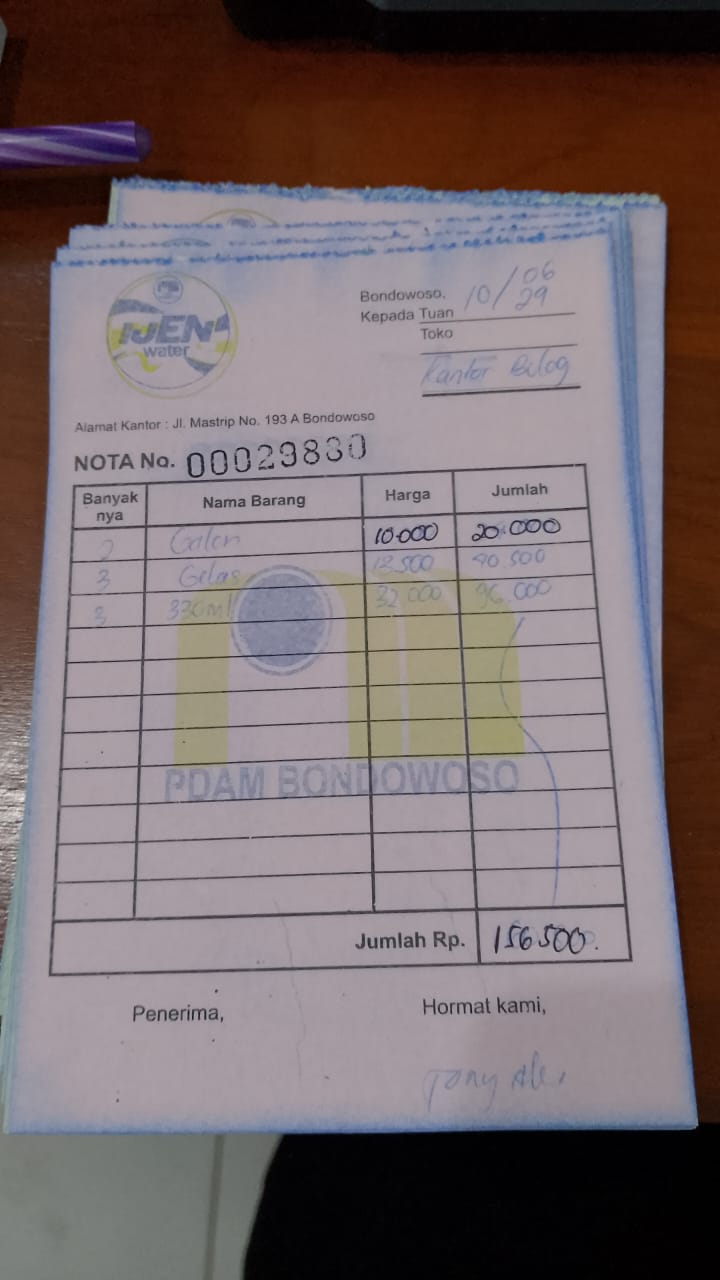 IJEN
water
Bondowoso, 10/06
29
Kepada Tuan
Toko
Kantor Bilog
Alamat Kantor : Jl. Mastrip No. 193 A Bondowoso
NOTA No. 00029880
Banyak nya Nama Barang Harga Jumlah
2 Galon 10.000 20.000
3 Gelas 13.500 40.500
3 330ml 32.000 96.000
PDAM BONDOWOSO
Jumlah Rp. 156.500.
Penerima, Hormat kami,
Tony